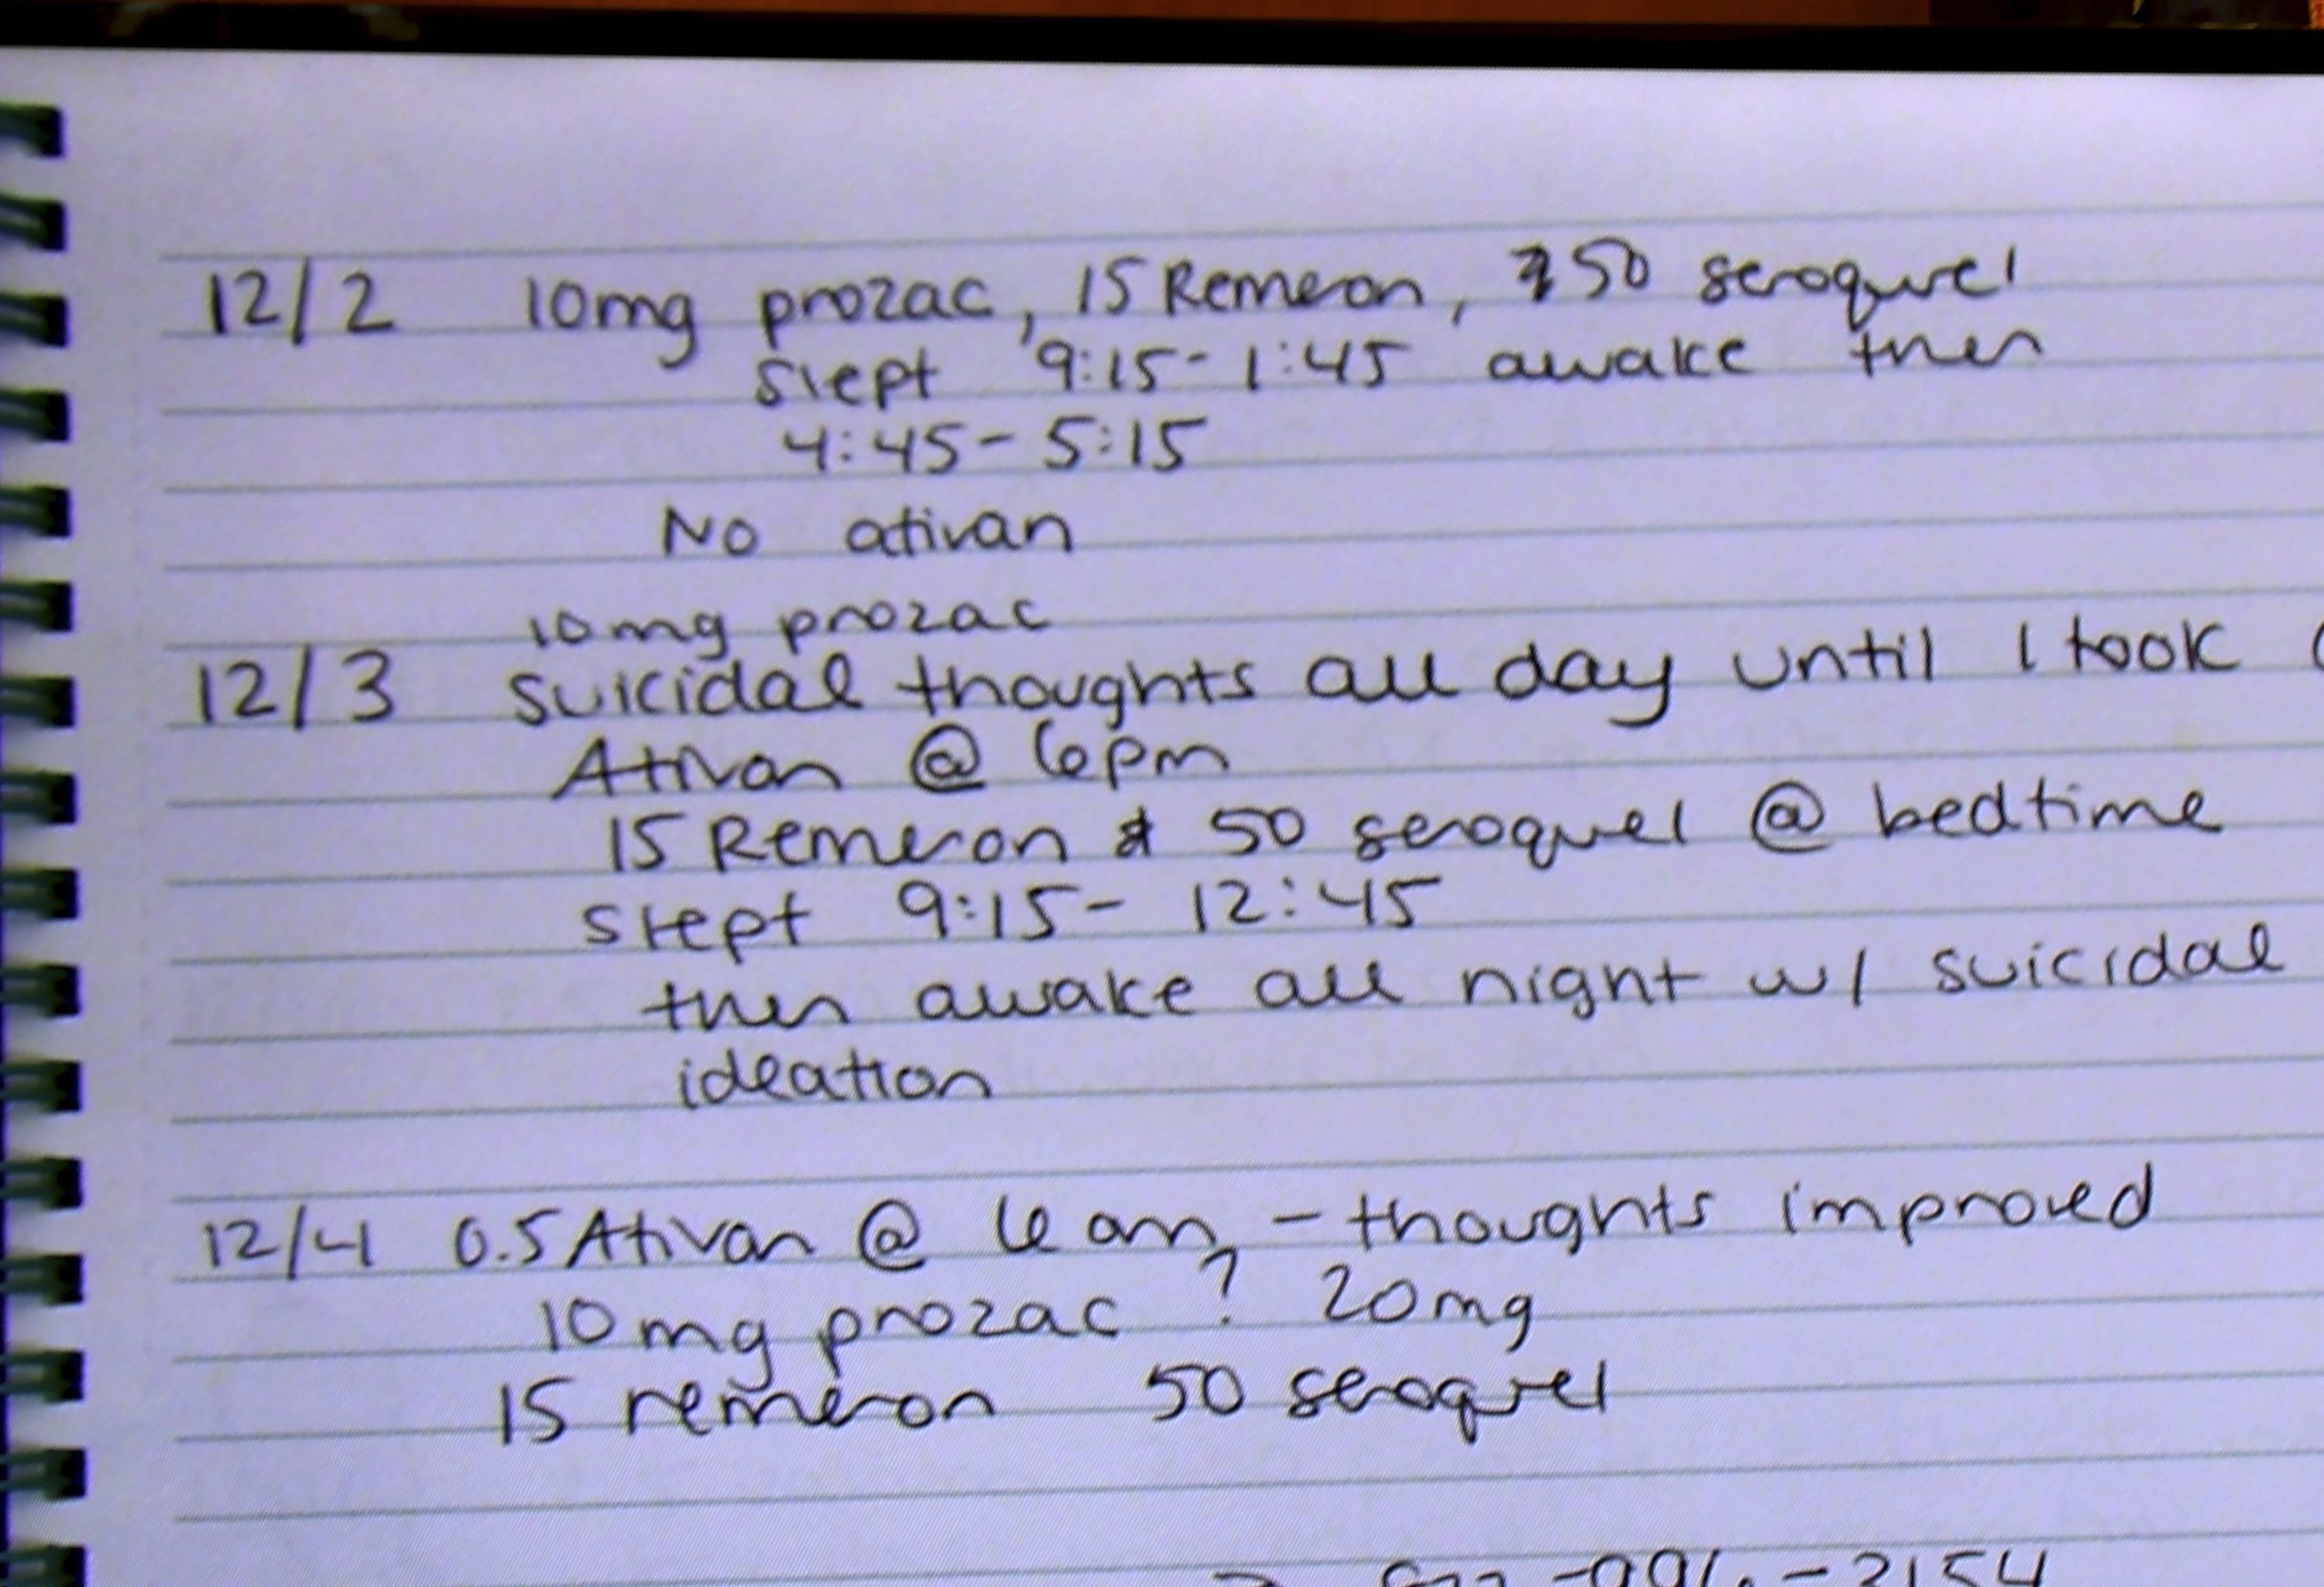 12/2 10mg prozac, 15 Remeron, 50 seroquel
slept 9:15-1:45 awake then
4:45-5:15
No ativan
10mg prozac
12/3 suicidal thoughts all day until I took
Ativan @ 6pm
15 Remeron & 50 seroquel @ bedtime
slept 9:15- 12:45
then awake all night w/ suicidal
ideation
12/4 0.5 Ativan @ 6am - thoughts improved
10mg prozac ? 20mg
15 remeron 50 seroquel
-2154